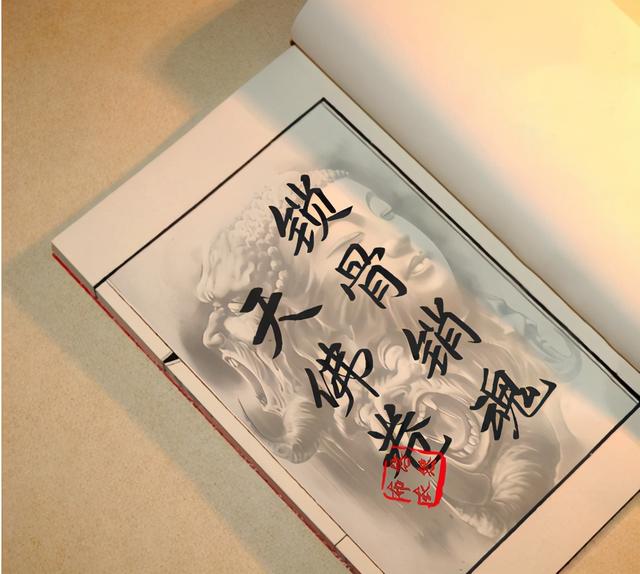 锁骨销魂
天佛卷